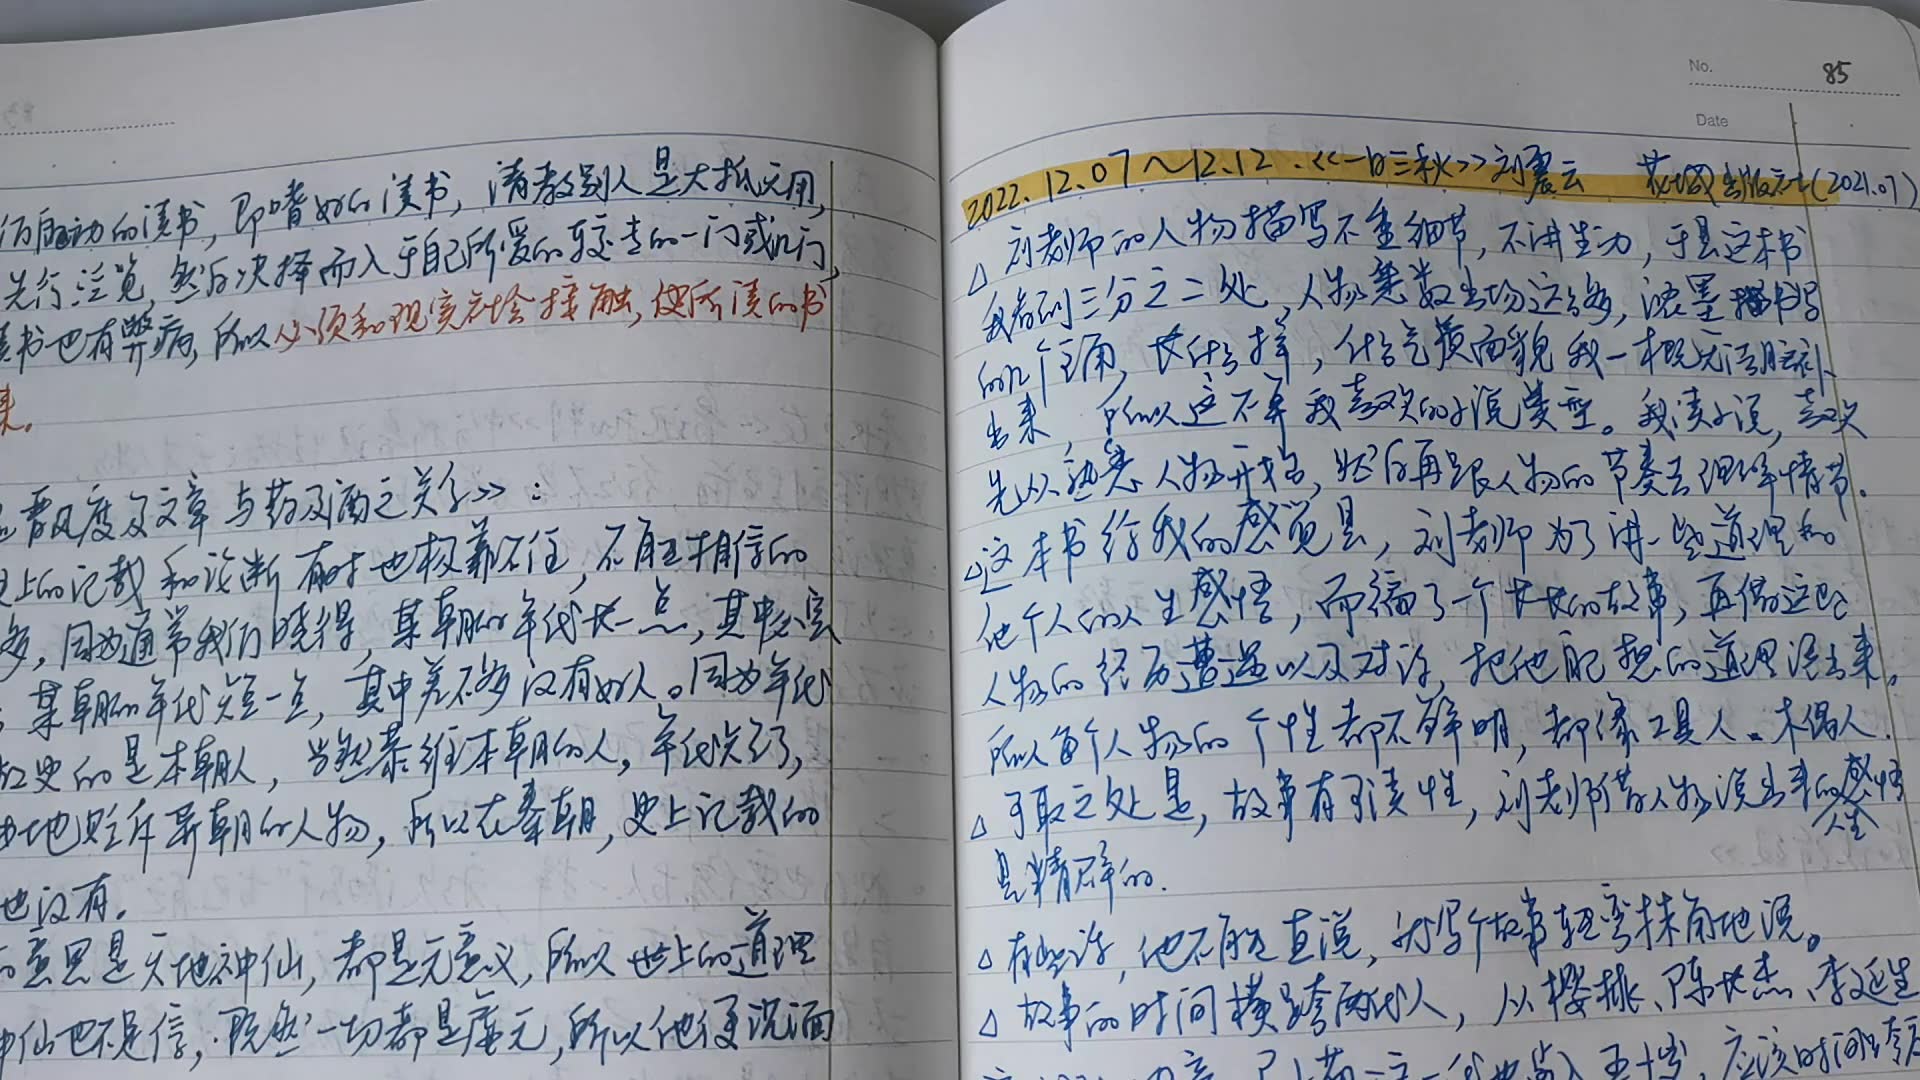 仍自动的读书，即嗜好的读书，请教别人是大抵无用，
先行泛览，然后决择而入于自己所爱的较专的一门或几门，
读书也有弊病，所以必须和现实社会接触，使所读的书
来。
晋风度及文章与药及酒之关系》：
上的记载和论断有时也极靠不住，不能相信的
多，因为通常我们晓得，某朝的年代长一点，其中必定
某朝的年代短一点，其中差不多没有好人。因为年代
史的是本朝人，当然恭维本朝的人，年代短了，
地贬斥异朝的人物，所以在秦朝，史上记载的
也没有。
意思是天地神仙，都是无意义，所以世上的道理
神仙也不足信，既然一切都是虚无，所以他便沉湎
No. 85
Date
2022.12.07～12.12.《一日三秋》刘震云 花城出版社(2021.07)
△刘老师的人物描写不重细节，不讲生动，于是这本书
我看到三分之二处，人物悉数出场这么多，浓墨书写
的几个主角，长什么样，什么气质面貌我一概无法脑补
出来，所以这不算我喜欢的小说类型。我读小说，喜欢
先从熟悉人物开始，然后再跟人物的节奏去理解情节。
△这本书给我的感觉是，刘老师为了讲一些道理和
他个人的人生感悟，而编了一个长长的故事，再借这些
人物的经历遭遇以及对话，把他所想的道理说出来。
所以每个人物的个性都不鲜明，都像工具人、木偶人.
△可取之处是，故事有可读性，刘老师借人物说出来的人生感悟
是精辟的.
△有些话，他不能直说，就写个故事拐弯抹角地说。
△故事的时间横跨两代人，从樱桃、陈长杰、李延生
五十岁，应该时间跨